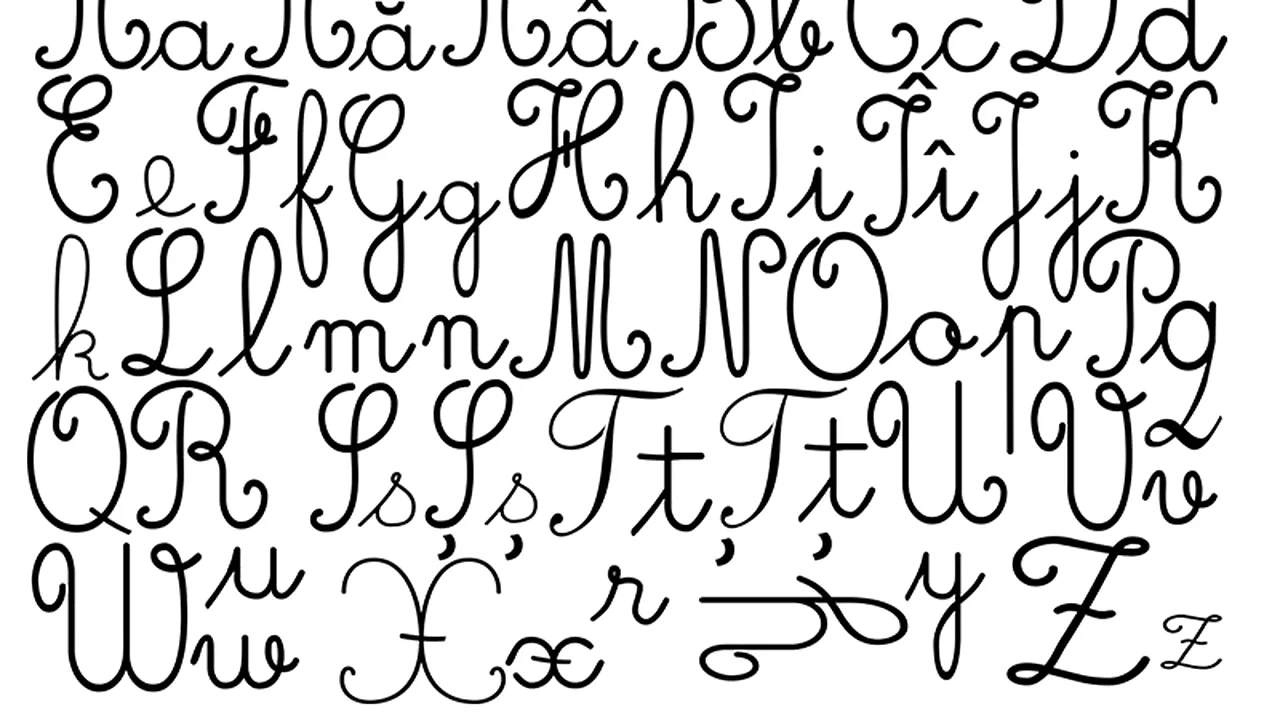 A a Ă ă Â â B b C c D d
E e F f G g H h I i Î î J j K
k L l m n M N O o p P q
Q R S s Ș ș T t Ț ț U V v
W w u X x r y Z z